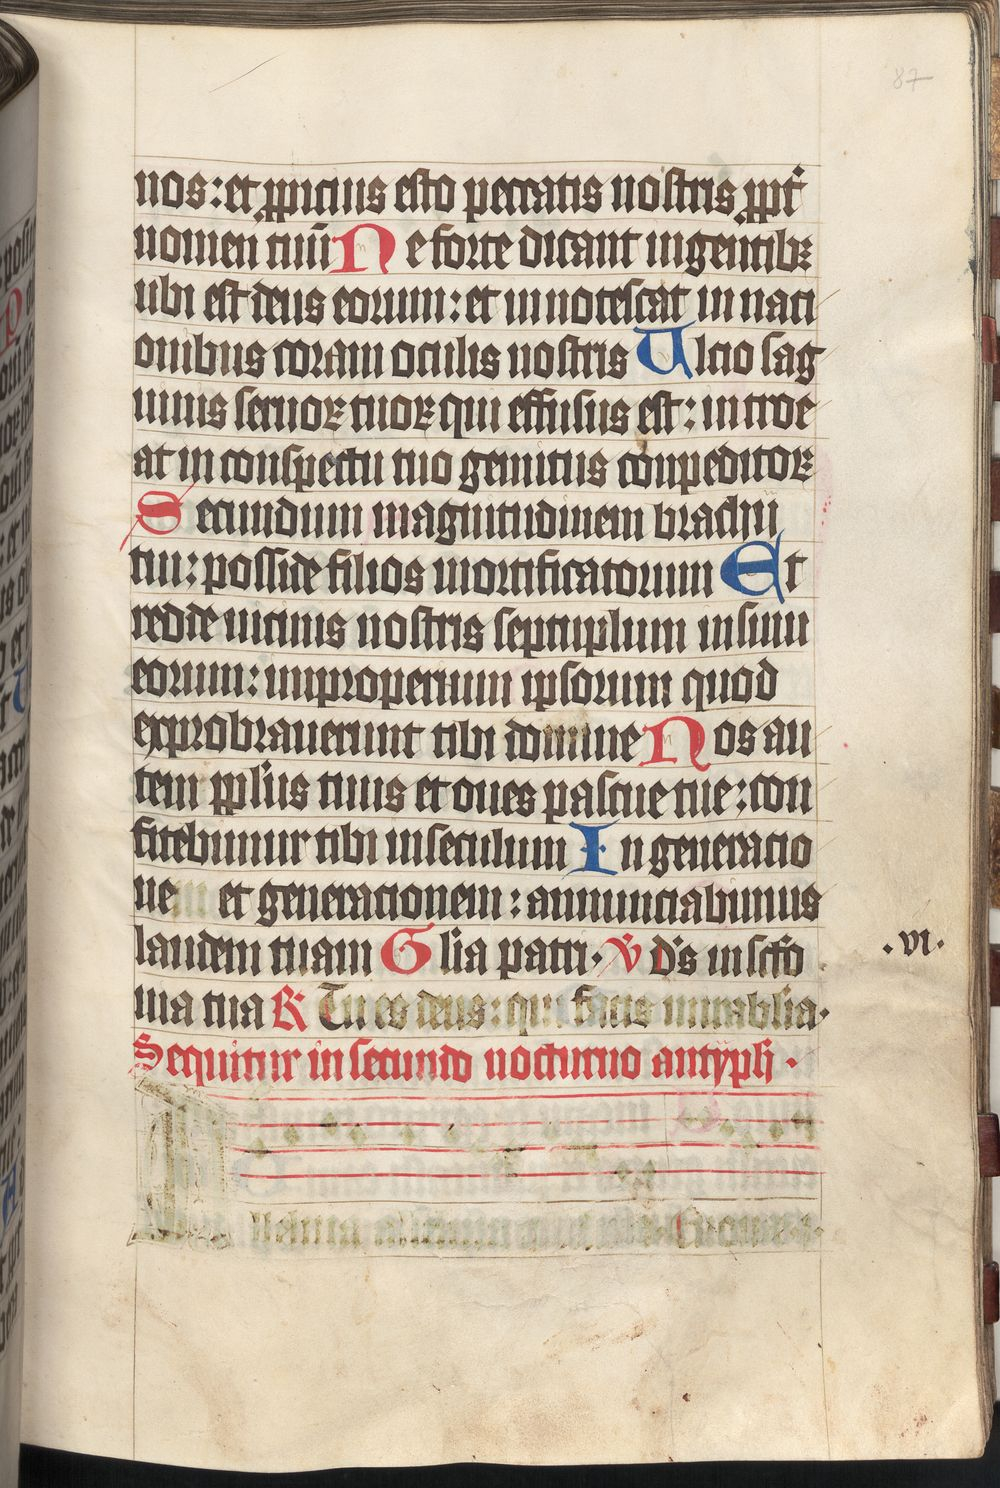 87
nos: et ppicius esto peccatis nostris ppt̄
nomen tuū Ne forte dicant in gentibꝫ
ubi est deus eorum: et innotescat in naci
onibus coram oculis nostris Ulcio sag
uinis seruoꝝ tuoꝝ qui effusus est: introe
at in conspectu tuo gemitus conpeditoꝝ
Secundum magnitudinem brachii
tui: posside filios mortificatorum Et
redde uicinis nostris septuplum in sinu
eorum: improperium ipsorum quod
exprobrauerunt tibi domine Nos au
tem pplūs tuus et oues pascue tue: con
fitebimur tibi in seculum In generacio
nem et generacionem: annunciabimus
laudem tuam Glia patri. ꝟ Ds in scto
.vi.
uia tua ℟ Tu es deus: qui facis mirablia.
Sequitur in secundo nocturno antyph.